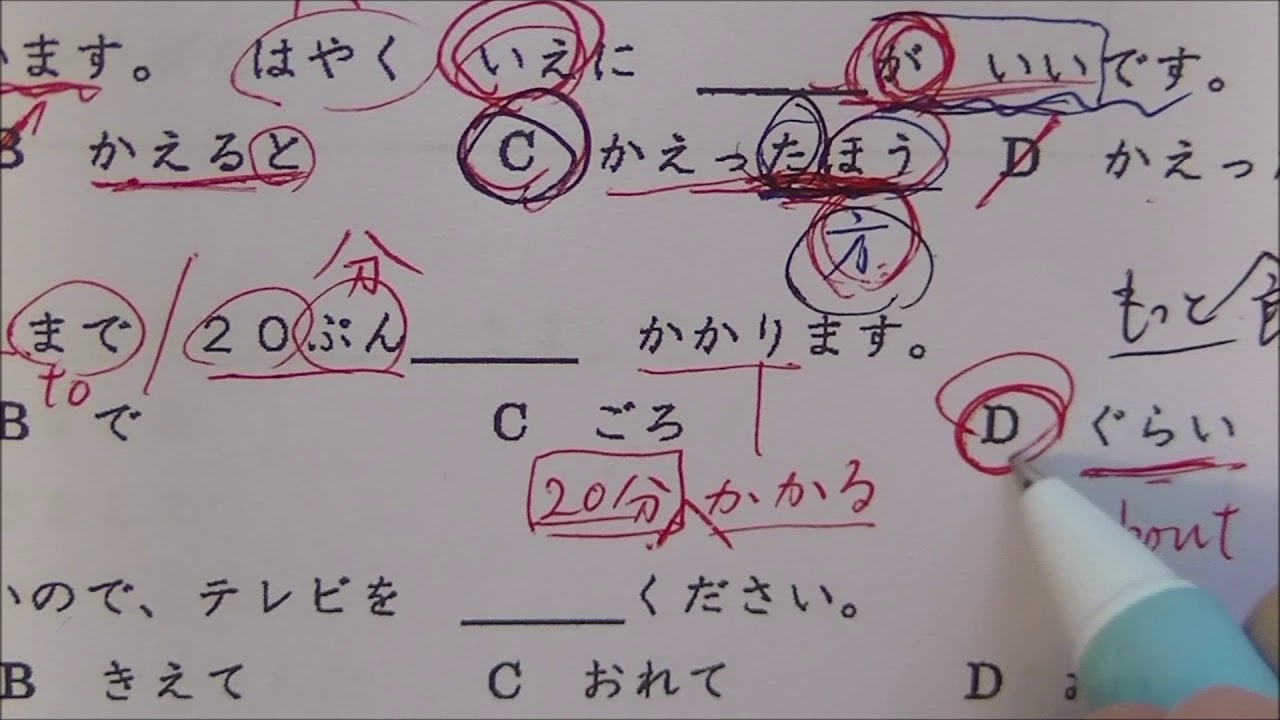 ます。 はやく いえに ______ が いいです。
B かえると C かえったほう D かえっ
方
分
もっと
まで / 20ぷん ______ かかります。
to
B で C ごろ D ぐらい
20分 かかる
ので、テレビを ______ ください。
B きえて C おれて D